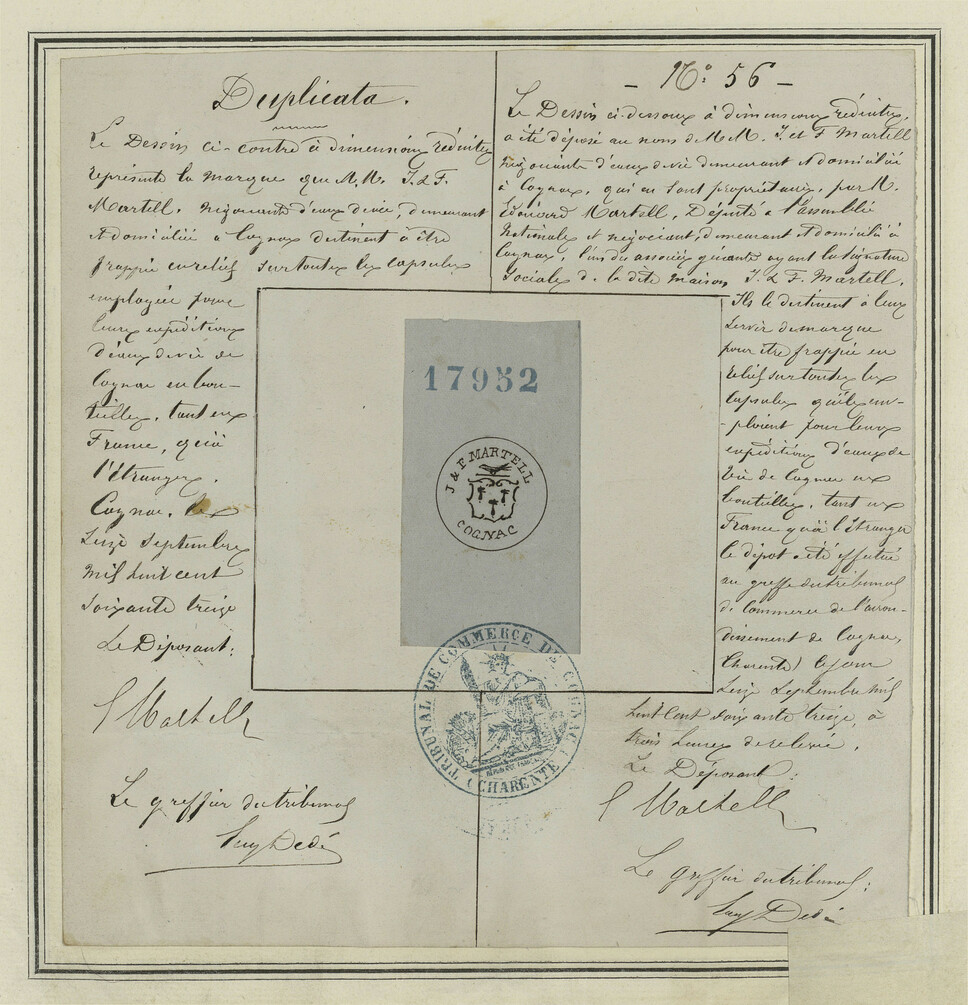 Duplicata.
Le Dessin ci-contre à dimensions réduites
représente la marque que M.M. J. & F.
Martell, négociants d'eaux de vie, demeurant
et domiciliés à Cognac destinent à être
frappée en relief sur toutes les capsules
employées pour
leurs expéditions
d'eaux de vie de
Cognac en bou-
teilles, tant en
France, qu'à
l'Étranger.
Cognac, le
Seize Septembre
mil huit cent
soixante treize
Le Déposant:
E Martell
Le greffier du tribunal
- No. 56 -
Le Dessin ci-dessous à dimensions réduites,
a été déposé au nom de M.M. J. et F. Martell
négociants d'eaux de vie demeurant et domiciliés
à Cognac, qui en sont propriétaires, par M.
Édouard Martell, Député à l'assemblée
Nationale et négociant, demeurant et domicilié à
Cognac, l'un des associés gérants ayant la signature
Sociale de la dite maison J. & F. Martell.
Ils le destinent à leur
servir de marque
pour être frappée en
relief sur toutes les
capsules qu'ils em-
-ploient pour leurs
expéditions d'eaux de
vie de Cognac en
bouteilles, tant en
France qu'à l'Étranger
le dépôt a été effectué
au greffe du tribunal
de Commerce de l'arron-
dissement de Cognac,
Charente) le jour
Seize Septembre mil
huit Cent soixante treize, à
trois heures de relevée.
Le Déposant:
E Martell
Le greffier du tribunal:
17952
J & F MARTELL
COGNAC
TRIBUNAL DE COMMERCE DE COGNAC
(CHARENTE)